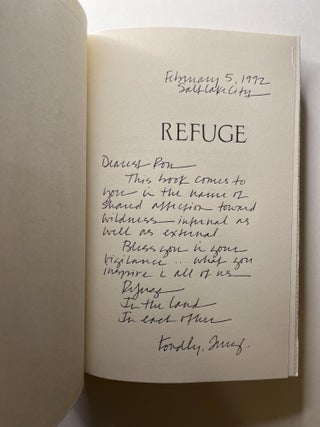 February 5, 1992
Salt Lake City
REFUGE
Dearest Ron
This book comes to
you in the name of
shared affection toward
wildness internal as
well as external.
Bless you in your
vigilance ... what you
inspire in all of us
Refuge
In the land
In each other
Fondly,